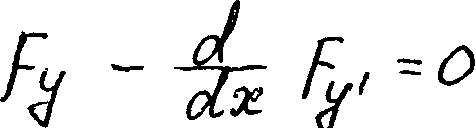 F_y - \frac{d}{dx} F_{y'} = 0